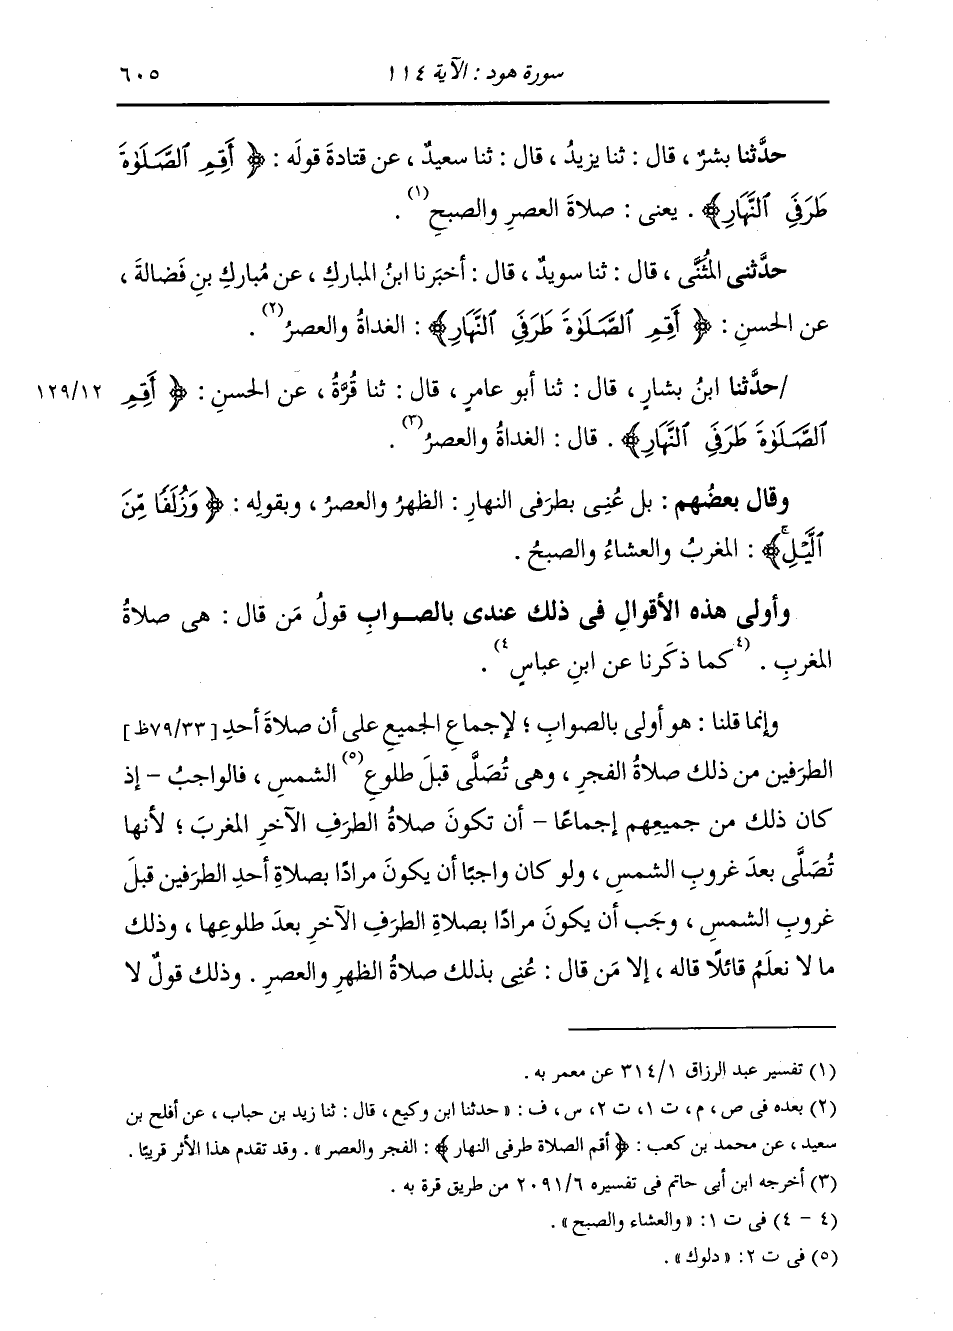 سورة هود : الآية ١١٤
٦٠٥
حدَّثنا بشرٌ ، قال : ثنا يزيدُ ، قال : ثنا سعيدٌ ، عن قتادةَ قولَه : ﴿ أَقِمِ ٱلصَّلَوٰةَ
طَرَفَىِ ٱلنَّهَارِ ﴾ . يعنى : صلاةَ العصرِ والصبحِ (١) .
حدَّثنى المُثَنَّى ، قال : ثنا سويدٌ ، قال : أخبَرنا ابنُ المباركِ ، عن مُباركِ بنِ فَضالةَ ،
عن الحسنِ : ﴿ أَقِمِ ٱلصَّلَوٰةَ طَرَفَىِ ٱلنَّهَارِ ﴾ : الغداةُ والعصرُ (٢) .
/حدَّثنا ابنُ بشارٍ ، قال : ثنا أبو عامرٍ ، قال : ثنا قُرَّةُ ، عن الحسنِ : ﴿ أَقِمِ ١٢٩/١٢
ٱلصَّلَوٰةَ طَرَفَىِ ٱلنَّهَارِ ﴾ . قال : الغداةُ والعصرُ (٣) .
وقال بعضُهم : بل عُنِى بطرَفى النهارِ : الظهرُ والعصرُ ، وبقولِه : ﴿ وَزُلَفًا مِّنَ
ٱلَّيْلِۚ ﴾ : المغربُ والعشاءُ والصبحُ .
وأولى هذه الأقوالِ فى ذلك عندى بالصـوابِ قولُ مَن قال : هى صلاةُ
المغربِ . (٤) كما ذكَرنا عن ابنِ عباسٍ (٤) .
وإنما قلنا : هو أولى بالصوابِ ؛ لإجماعِ الجميعِ على أن صلاةَ أحدِ [٧٩/٣٣ظ]
الطرَفين من ذلك صلاةُ الفجرِ ، وهى تُصَلَّى قبلَ طلوعِ (٥) الشمسِ ، فالواجبُ – إذ
كان ذلك من جميعِهم إجماعًا – أن تكونَ صلاةُ الطرَفِ الآخرِ المغربَ ؛ لأنها
تُصَلَّى بعدَ غروبِ الشمسِ ، ولو كان واجبًا أن يكونَ مرادًا بصلاةِ أحدِ الطرَفين قبلَ
غروبِ الشمسِ ، وجَب أن يكونَ مرادًا بصلاةِ الطرَفِ الآخرِ بعدَ طلوعِها ، وذلك
ما لا نعلَمُ قائلًا قاله ، إلا مَن قال : عُنِى بذلك صلاةُ الظهرِ والعصرِ . وذلك قولٌ لا
(١) تفسير عبد الرزاق ٣١٤/١ عن معمر به .
(٢) بعده فى ص ، م ، ت ١، ت ٢، س ، ف : « حدثنا ابن وكيع ، قال : ثنا زيد بن حباب ، عن أفلح بن
سعيد ، عن محمد بن كعب : ﴿ أقم الصلاة طرفى النهار ﴾ : الفجر والعصر » . وقد تقدم هذا الأثر قريبًا .
(٣) أخرجه ابن أبى حاتم فى تفسيره ٢٠٩١/٦ من طريق قرة به .
(٤ – ٤) فى ت ١: « والعشاء والصبح » .
(٥) فى ت ٢: « دلوك » .